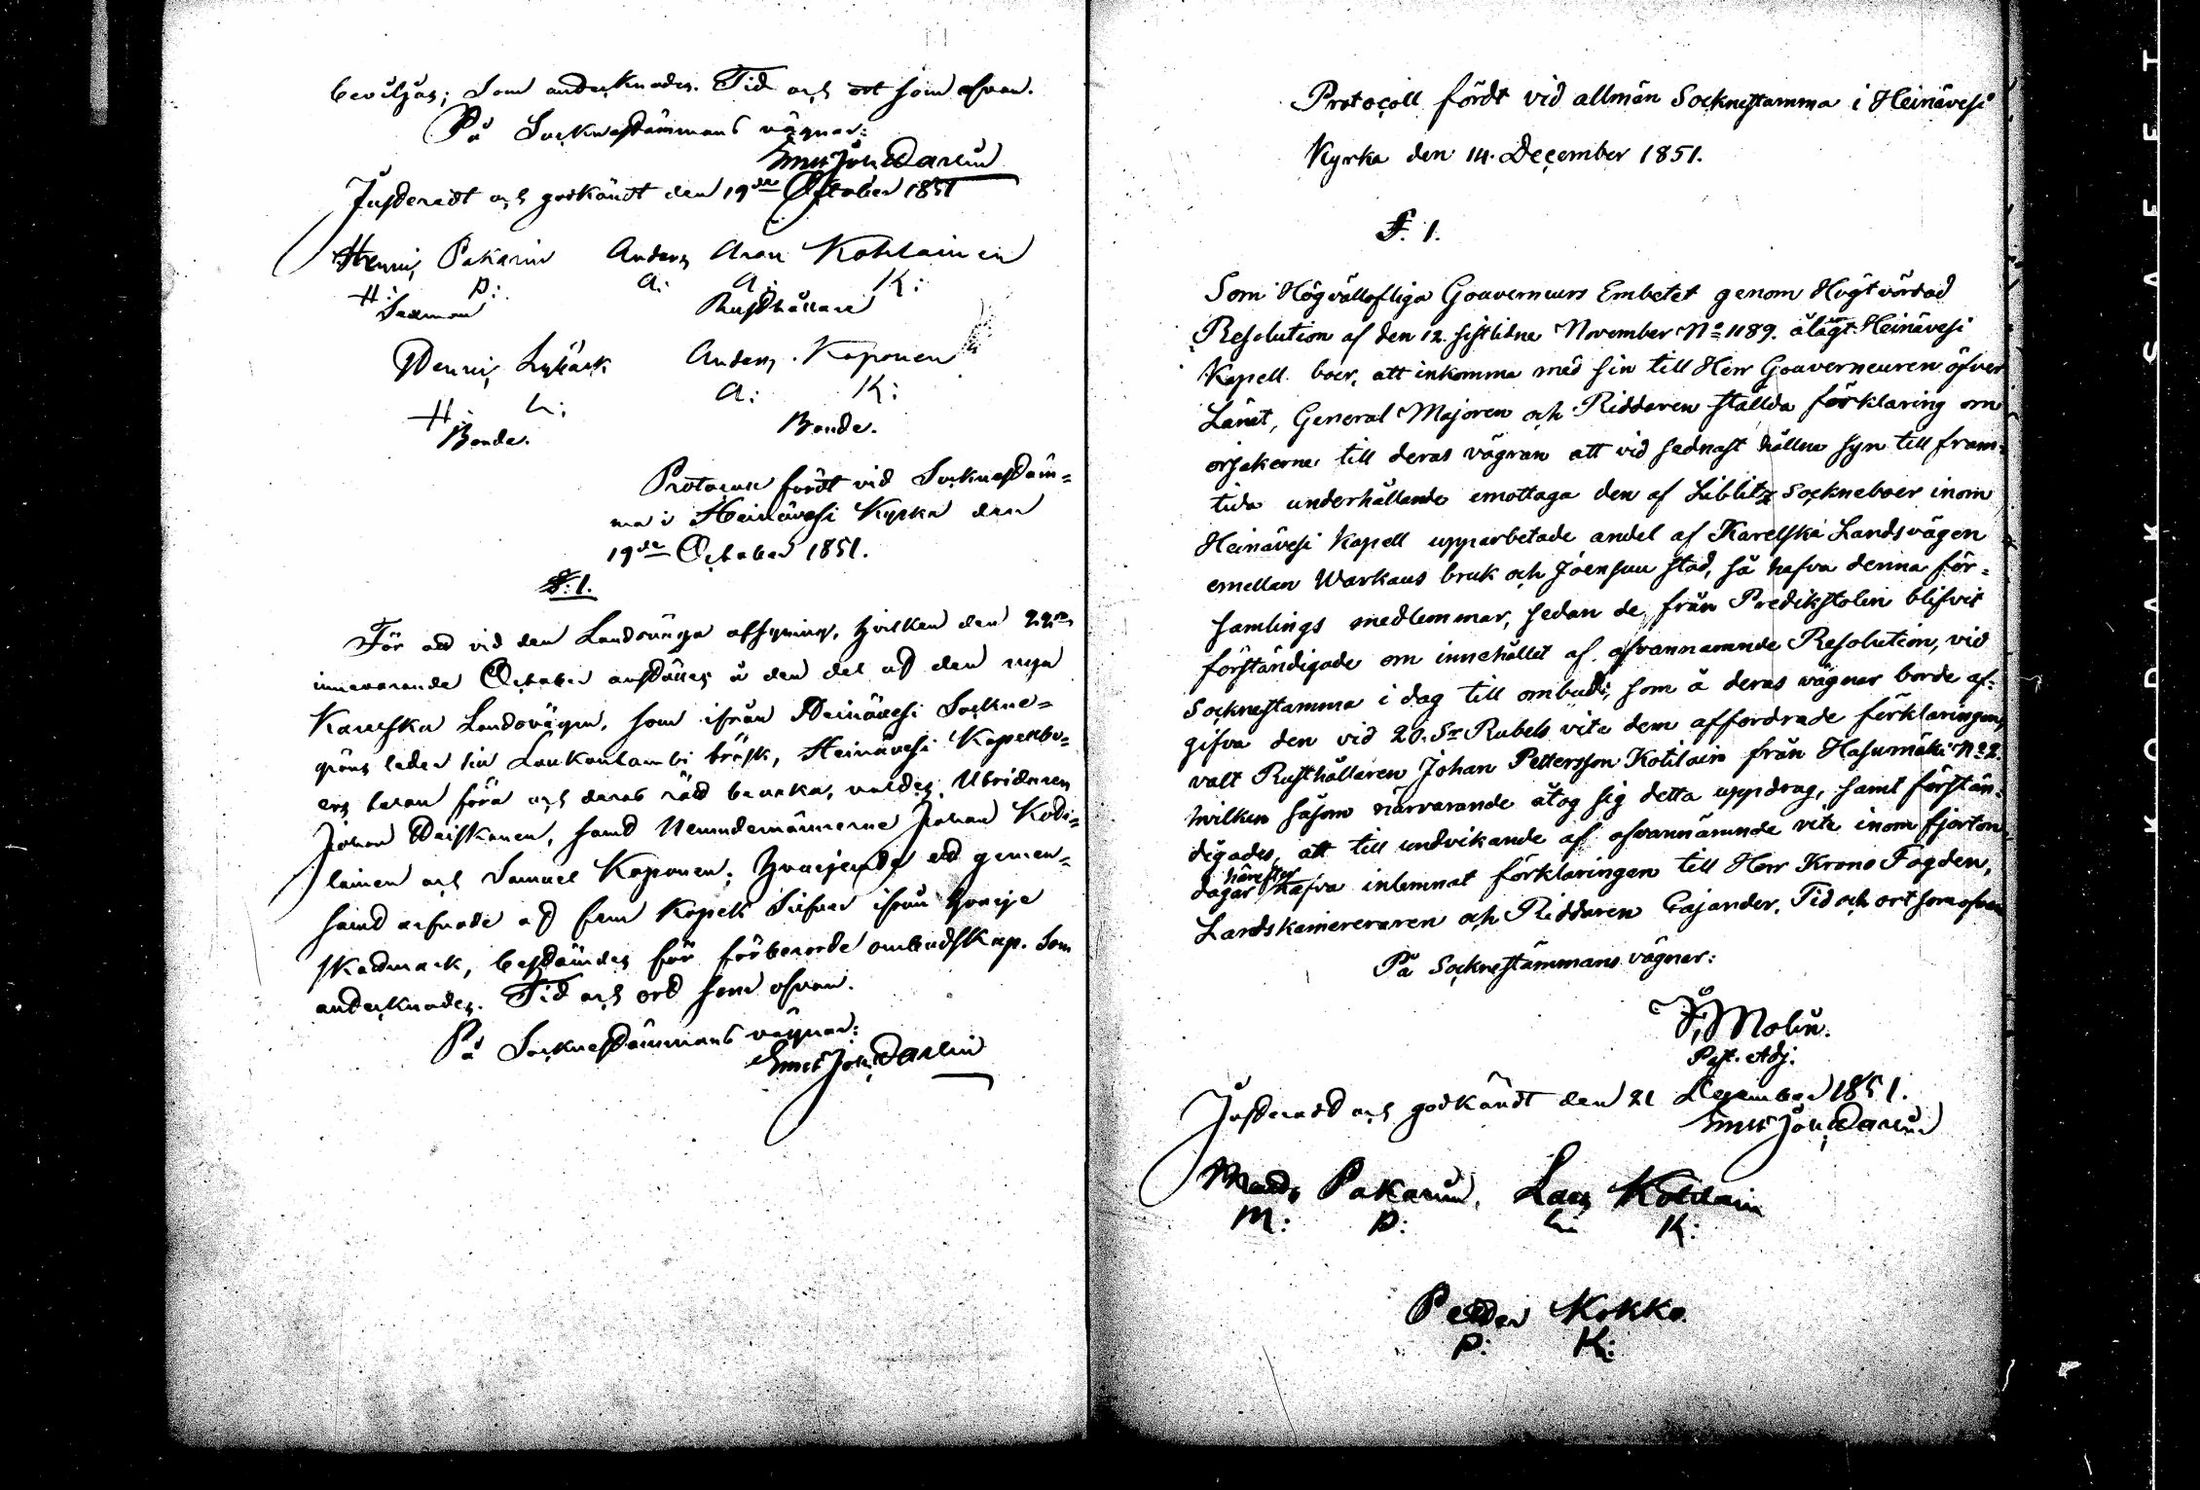 beviljas; Som antecknades. Tid och ort som ofvan.
På Socknestämmans vägnar:
Justeradt och godkändt den 19de October 1851
Henric Pakarin Anders Aron Kotilainen
H: P: A: A: K:
Sexman Rusthållare
Henric Lybäck Anders Koponen
H: L: A: K:
Bonde. Bonde.
Protocoll fördt vid Socknestäm=
ma i Heinävesi Kyrka den
19de October 1851.
§. 1.
För att vid den Landsvägs afsyning, hvilken den 22
innevarande October anställes å den del af den nya
Karelska Landsvägen, som ifrån Heinävesi Sockne=
gräns leder till Laukanlambi träsk, Heinävesi Kapellbo=
ers talan föra och deras rätt bevaka, valdes Utridaren
Johan Haiskanen, samt Nemndemännerne Johan Koti=
lainen och Samuel Koponen; hvarjemte ett gemen=
samt arfvode af fem Kopek Silfver ifrån hvarje
skattmark, bestämdes för förberörde ombudskap. Som
antecknades. Tid och ort som ofvan.
På Socknestämmans vägnar:
Protocoll fördt vid allmän Socknestämma i Heinävesi
Kyrka den 14. December 1851.
§. 1.
Som Högvällofliga Gouverneurs Embetet genom Högtvördad
Resolution af den 12. sistlidne November No 1189. ålagt Heinävesi
Kapell boer, att inkomma med sin till Herr Gouverneuren öfver
Länet, General Majoren och Riddaren ställda förklaring om
orsakerne till deras vägran att vid sednast hållne syn till fram=
tida underhållande emottaga den af Libblitz Sockneboer inom
Heinävesi Kapell upparbetade andel af Karelska Landsvägen
emellan Warkaus bruk och Joensuu stad, så hafva denna för=
samlings medlemmar, sedan de från Predikstolen blifvit
förständigade om innehållet af ofvannämnde Resolution, vid
Socknestämma i dag till ombud, som å deras vägnar borde af=
gifva den vid 20. Sr Rubels vite dem affordrade förklaringen,
valt Rusthållaren Johan Pettersson Kotilain från Hasumäki No 2.
hvilken såsom närvarande åtog sig detta uppdrag, samt förstän=
digades, att till undvikande af ofvannämnde vite inom fjorton
dagar härefter hafva inlemnat förklaringen till Herr Krono Fogden,
Landskamereraren och Riddaren Cajander. Tid och ort som ofvan
På Socknestämmans vägnar:
Molin.
Past. Adj.
Justeradt och godkändt den 21 December 1851.
Mats Pakarin. Lars Kotilain
M: P: L: K:
Petter Kokko.
P: K:
KODAK SAFET